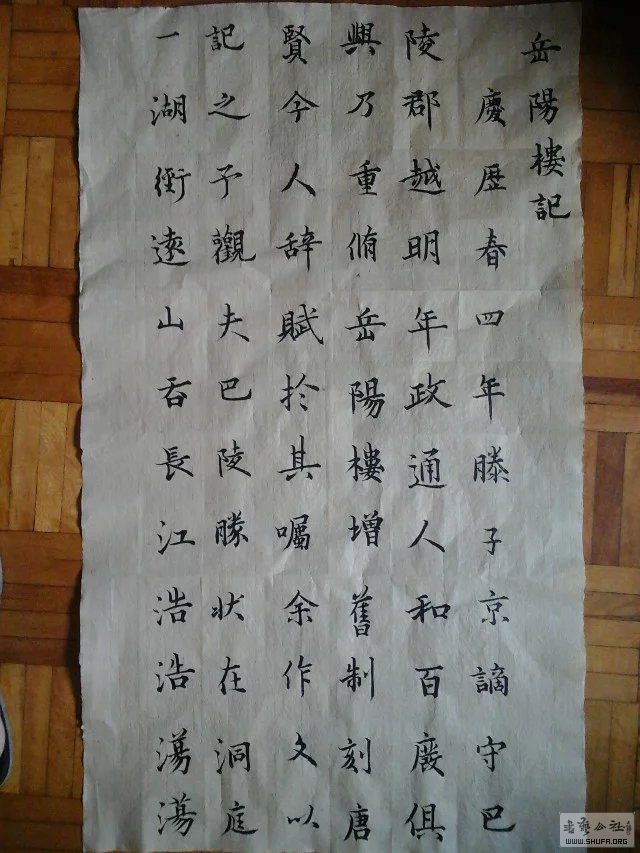 岳陽樓記
慶歷春四年滕子京謫守巴
陵郡越明年政通人和百廢俱
興乃重脩岳陽樓增舊制刻唐
賢今人辞賦於其囑余作文以
記之予觀夫巴陵勝状在洞庭
一湖衝遠山吞長江浩浩蕩蕩
書藝公社
WWW.SHUFA.ORG